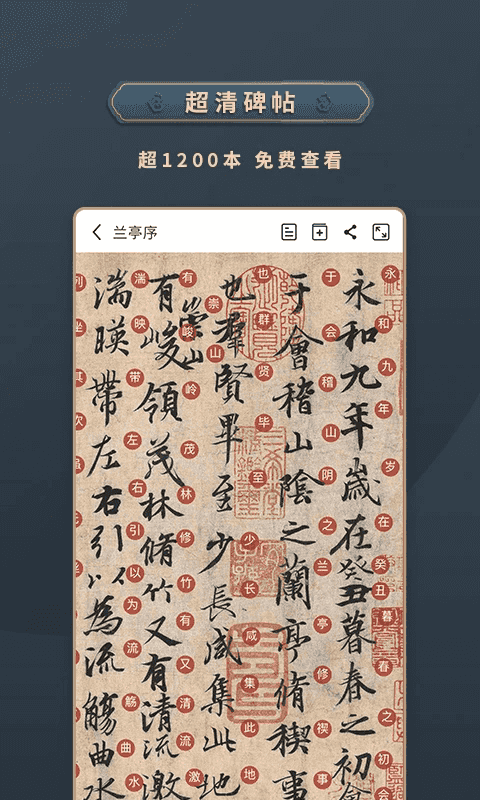 超清碑帖
超1200本 免费查看
兰亭序
永和九年歲在癸丑暮春之初會
永和九年岁在癸丑暮春之初会
于會稽山陰之蘭亭脩稧事
于会稽山阴之兰亭修禊事
也羣賢畢至少長咸集此地
也群贤毕至少长咸集此地
有崇山峻領茂林脩竹又有清流激
有崇山峻岭茂林修竹又有清流激
湍暎帶左右引以為流觴曲水
湍映带左右引以为流觞曲水